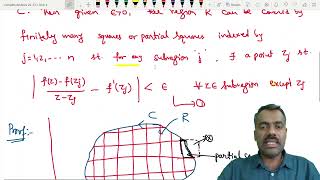 C. Then given ε>0, the region R can be covered by
finitely many squares or partial squares indexed by
j=1,2,... n st for any subregion j, ∃ a point zj st
| f(z) - f(zj) / z - zj - f'(zj) | < ε ∀ z ∈ subregion except zj
→ ①
Proof:-
C
R
partial